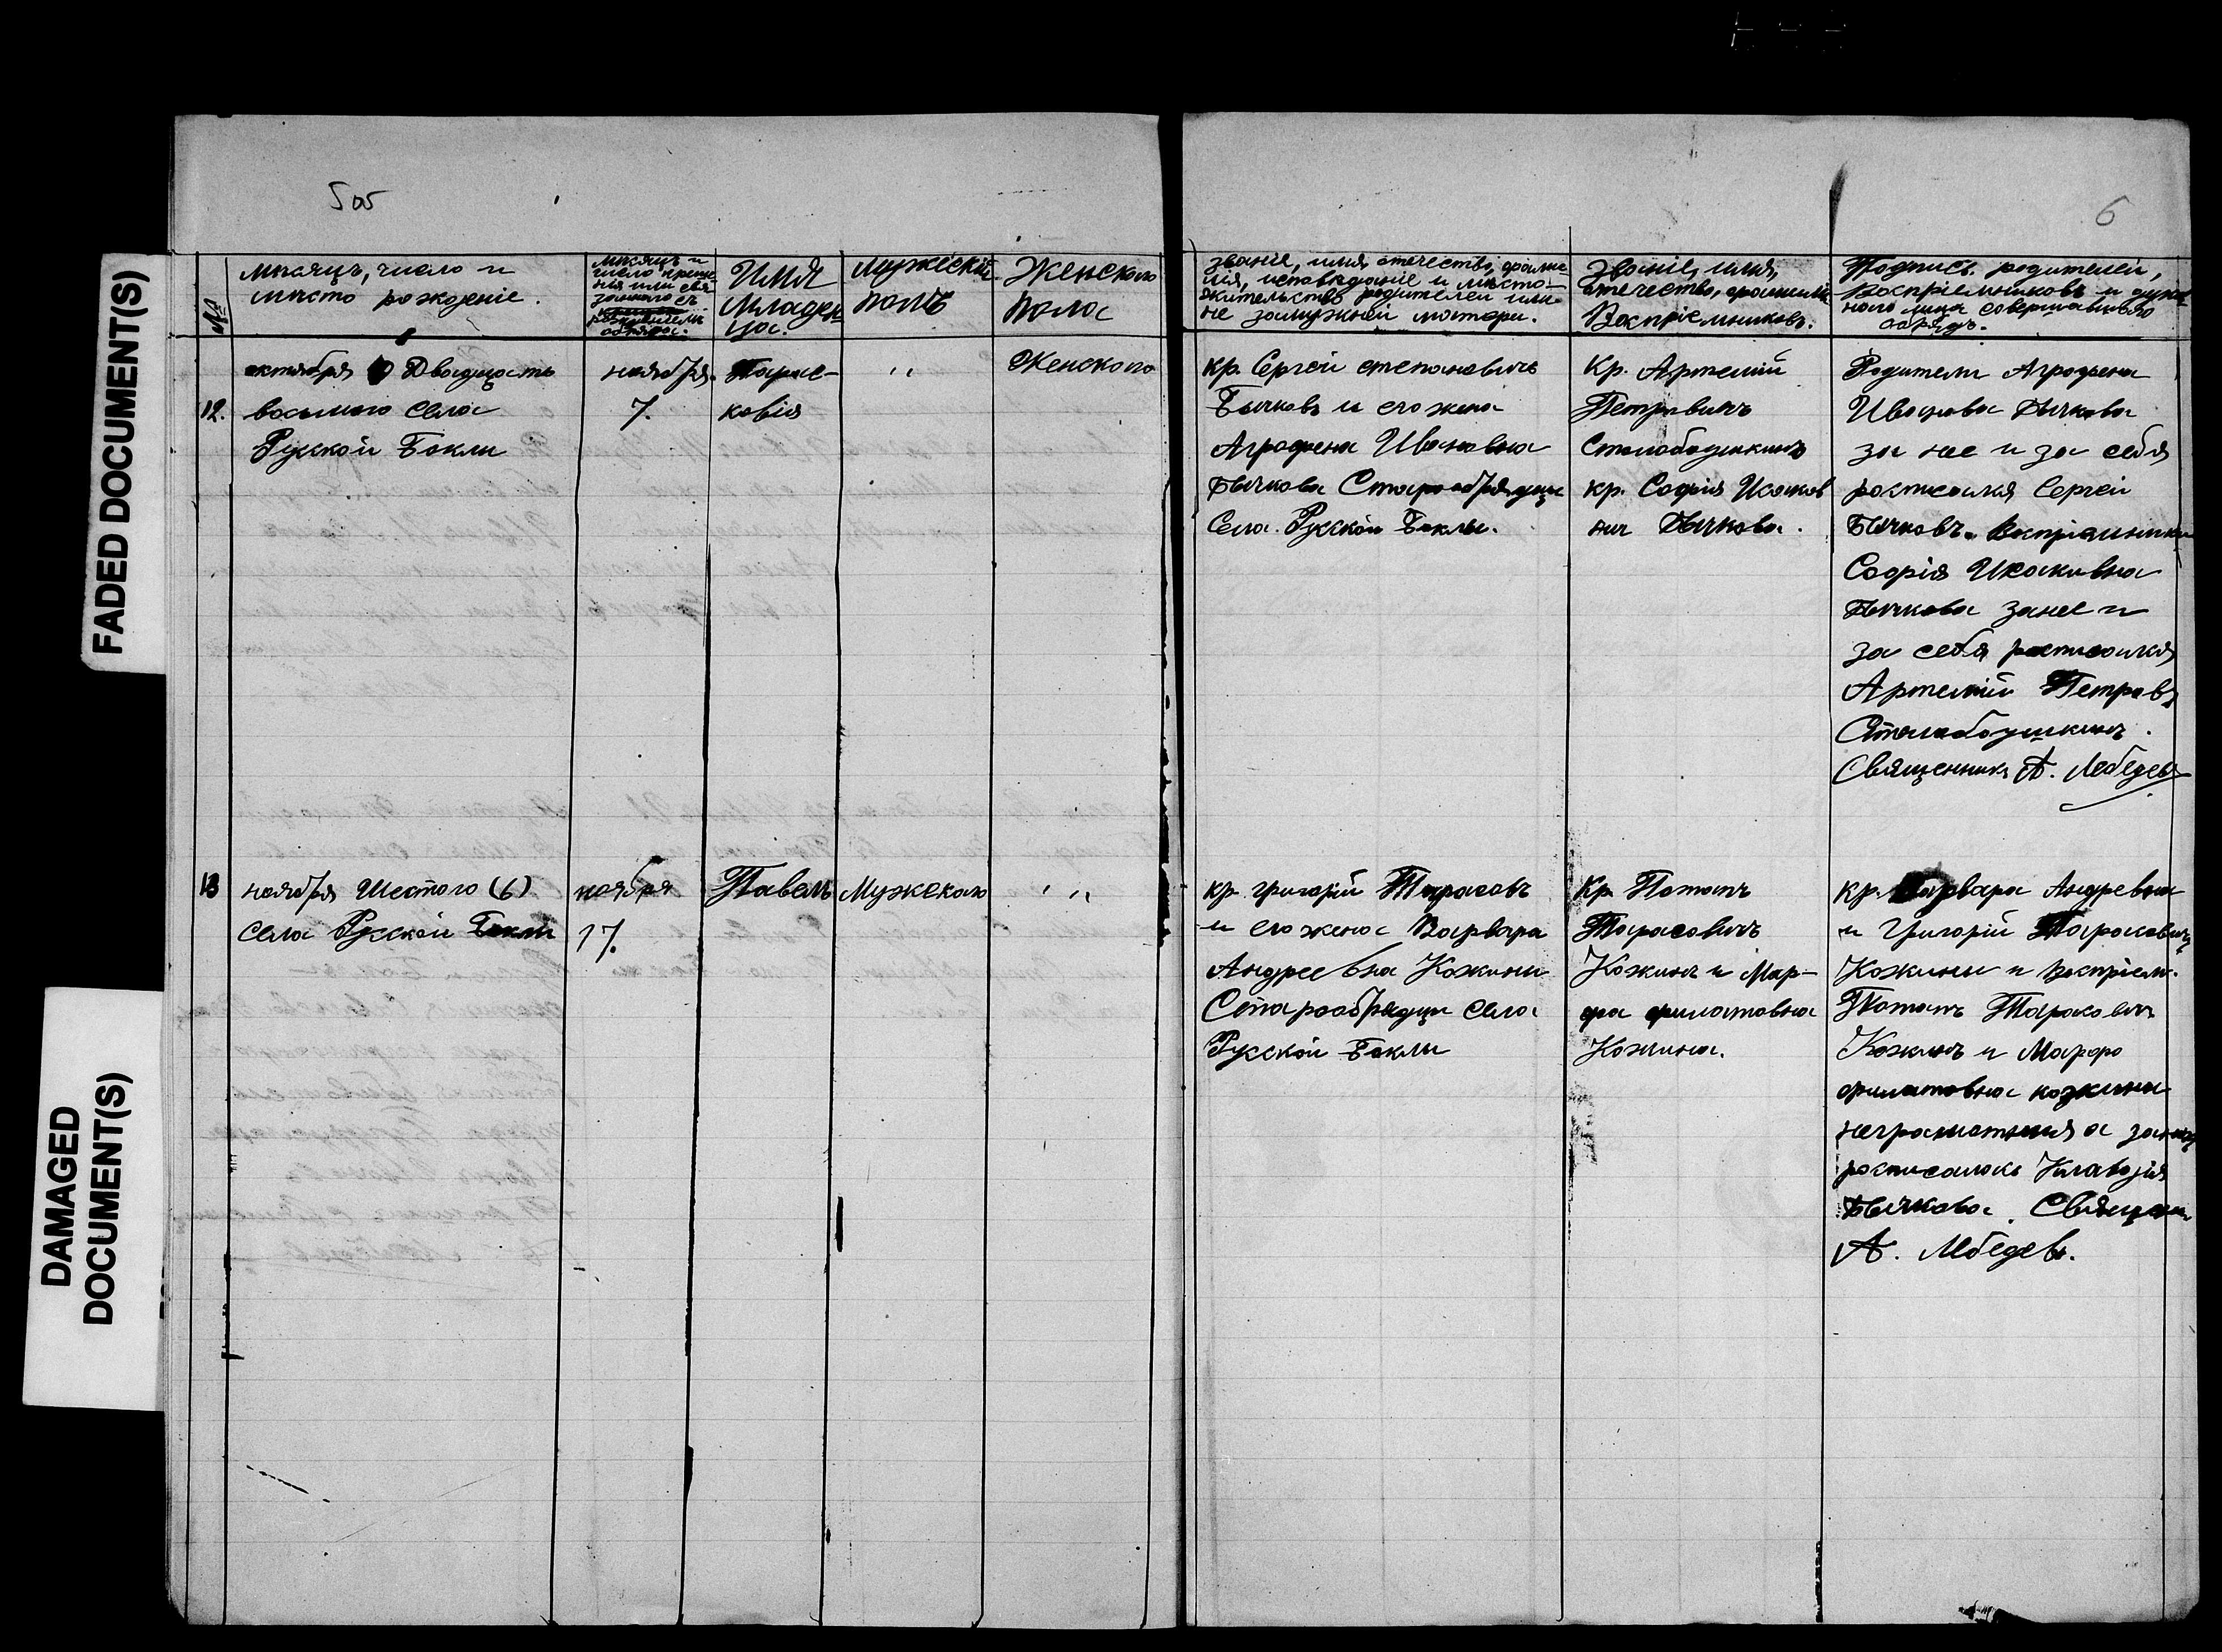 FADED DOCUMENT(S)
DAMAGED
DOCUMENT(S)
505
6
№
мѣсяцъ, число и
мѣсто рожденіе.
мѣсяцъ и
число креще
нія или свя
заннаго съ
обряда.
Имя
Младен
ца.
мужескій
полъ
Женскаго
пола
званіе, имя, отечество, фами
лія, исповѣданіе и мѣсто-
жительство родителей или
не замужней матери.
Званіе, имя,
отечество, фамилія
Воспріемниковъ.
Подпись родителей,
Воспріемниковъ и духов
наго лица совершавшаго
обрядъ.
12.
октября Двадцать
восьмого села
Русской Бокли
ноября.
7.
Парас-
ковія
"
Женскаго
кр. Сергей степановичъ
Бычковъ и его жена
Аграфена Ивановна
Бычкова Старообрядцы
Села. Русской Боклы.
Кр. Артемій
Петровичъ
Столабоушкинъ
кр. Софія Исаков
на Бычкова.
Родители Аграфена
Иванова Бычкова
за нее и за себя
росписался Сергей
Бычковъ. Воспріемники
Софія Исаковна
Бычкова занее и
за себя росписался
Артемий Петровъ
Столабоушкинъ.
Священникъ А. Лебедевъ
13
ноября Шестого (6)
села Русской Бокли
ноября
17.
Павелъ
Мужескаго
" "
кр. григорій Тарасовъ
и его жена Варвара
Андреевна Кожины
Старообрядцы села
Русской Бокли
Кр. Потапъ
Тарасовичъ
Кожинъ и Мар-
фа филатовна
Кожина.
кр. Варвара Андревна
и Григорій Тарасовичъ
Кожины и Воспріем.
Потапъ Тарасовичъ
Кожинъ и Марфа
филатовна кожины
неграмотныя а за нихъ
росписалась Клавдія
Бычкова. Священ
А. Лебедевъ.